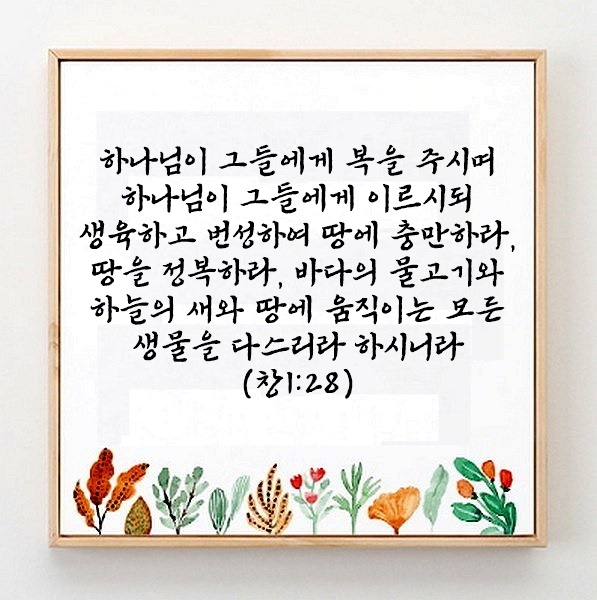 하나님이 그들에게 복을 주시며
하나님이 그들에게 이르시되
생육하고 번성하여 땅에 충만하라,
땅을 정복하라, 바다의 물고기와
하늘의 새와 땅에 움직이는 모든
생물을 다스리라 하시니라
(창1:28)